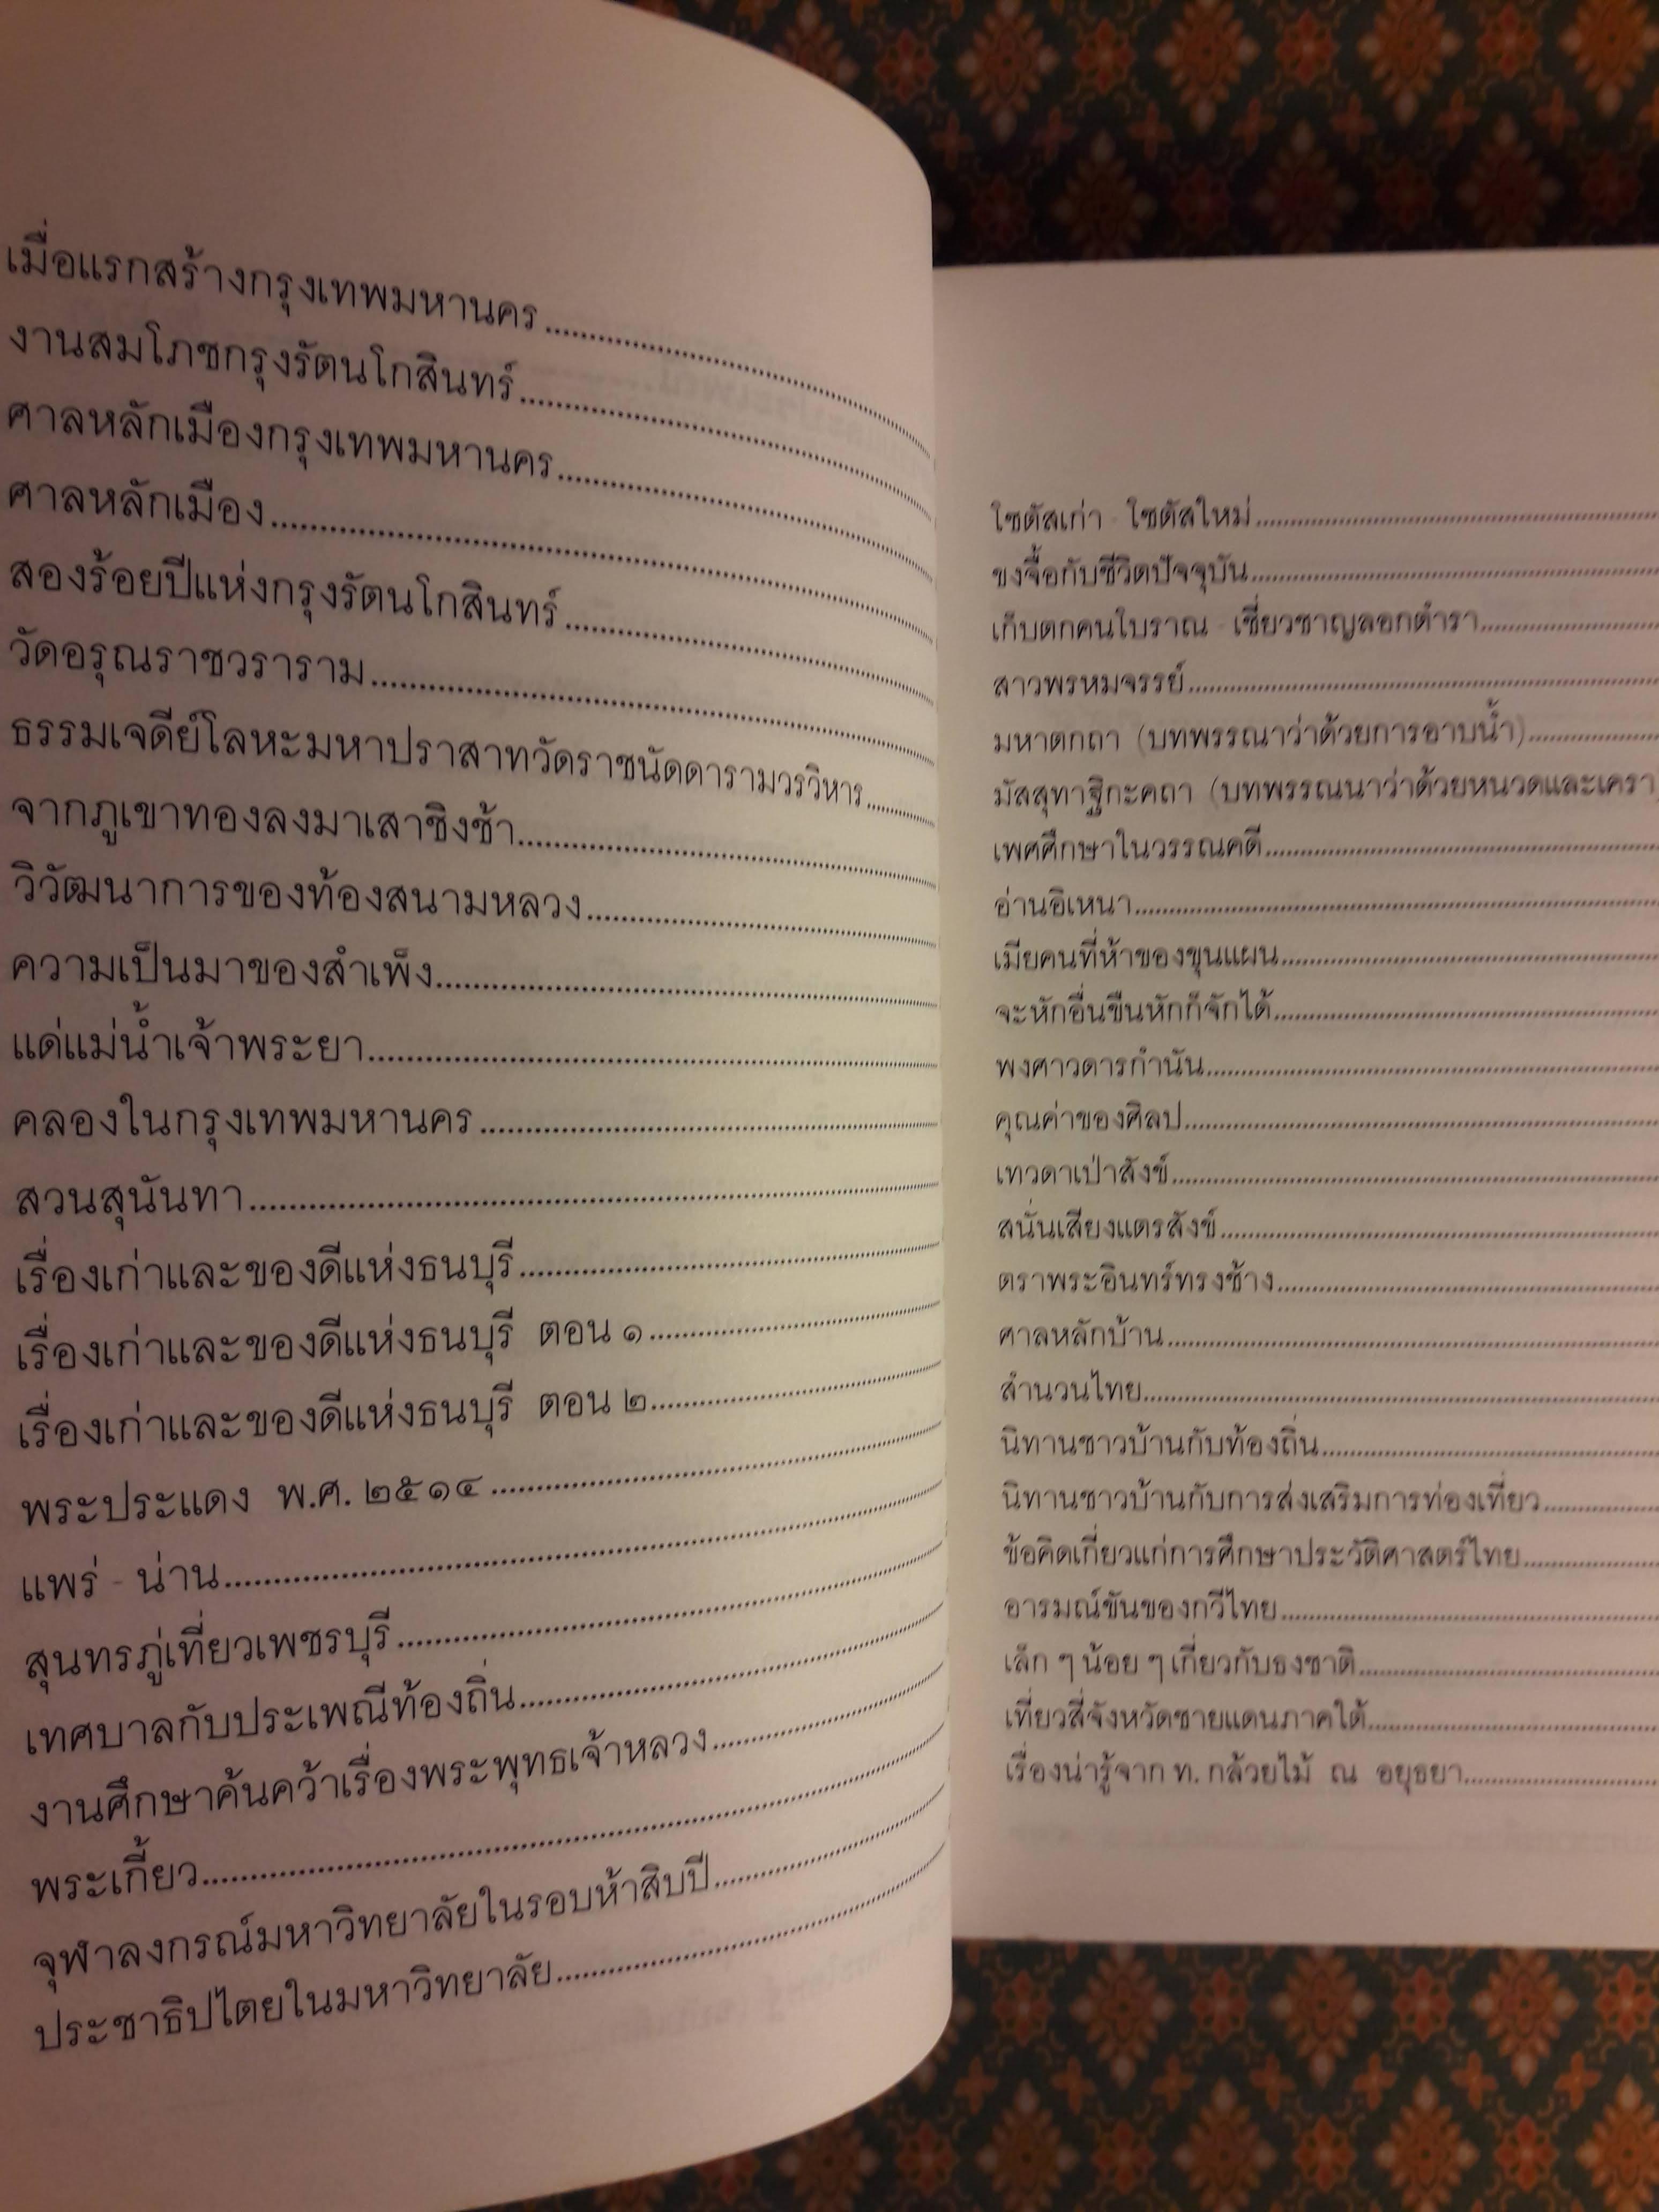 เมื่อแรกสร้างกรุงเทพมหานคร
งานสมโภชกรุงรัตนโกสินทร์
ศาลหลักเมืองกรุงเทพมหานคร
ศาลหลักเมือง
สองร้อยปีแห่งกรุงรัตนโกสินทร์
วัดอรุณราชวราราม
ธรรมเจดีย์โลหะมหาปราสาทวัดราชนัดดารามวรวิหาร
จากภูเขาทองลงมาเสาชิงช้า
วิวัฒนาการของท้องสนามหลวง
ความเป็นมาของสำเพ็ง
แด่แม่น้ำเจ้าพระยา
คลองในกรุงเทพมหานคร
สวนสุนันทา
เรื่องเก่าและของดีแห่งธนบุรี
เรื่องเก่าและของดีแห่งธนบุรี ตอน ๑
เรื่องเก่าและของดีแห่งธนบุรี ตอน ๒
พระประแดง พ.ศ. ๒๕๑๔
แพร่ - น่าน
สุนทรภู่เที่ยวเพชรบุรี
เทศบาลกับประเพณีท้องถิ่น
งานศึกษาค้นคว้าเรื่องพระพุทธเจ้าหลวง
พระเกี้ยว
จุฬาลงกรณ์มหาวิทยาลัยในรอบห้าสิบปี
ประชาธิปไตยในมหาวิทยาลัย
โซตัสเก่า - โซตัสใหม่
ขงจื๊อกับชีวิตปัจจุบัน
เก็บตกคนโบราณ - เชี่ยวชาญลอกตำรา
สาวพรหมจรรย์
มหาตกถา (บทพรรณาว่าด้วยการอาบน้ำ)
มัสสุทาฐิกะคถา (บทพรรณนาว่าด้วยหนวดและเครา)
เพศศึกษาในวรรณคดี
อ่านอิเหนา
เมียคนที่ห้าของขุนแผน
จะหักอื่นขืนหักก็จักได้
พงศาวดารกำนัน
คุณค่าของศิลป
เทวดาเป่าสังข์
สนั่นเสียงแตรสังข์
ตราพระอินทร์ทรงช้าง
ศาลหลักบ้าน
สำนวนไทย
นิทานชาวบ้านกับท้องถิ่น
นิทานชาวบ้านกับการส่งเสริมการท่องเที่ยว
ข้อคิดเกี่ยวแก่การศึกษาประวัติศาสตร์ไทย
อารมณ์ขันของกวีไทย
เล็ก ๆ น้อย ๆ เกี่ยวกับธงชาติ
เที่ยวสี่จังหวัดชายแดนภาคใต้
เรื่องน่ารู้จาก ท. กล้วยไม้ ณ อยุธยา